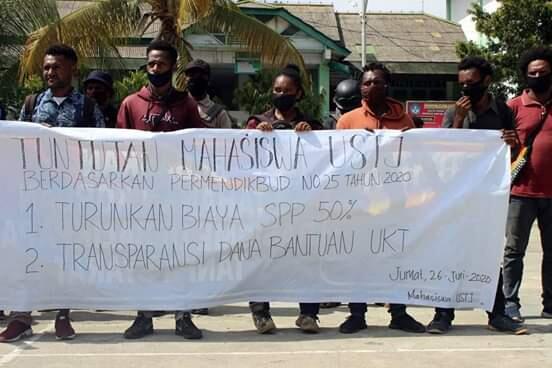 TUNTUTAN MAHASISWA USTJ
BERDASARKAN PERMENDIKBUD NO 25 TAHUN 2020
1. TURUNKAN BIAYA SPP 50%
2. TRANSPARANSI DANA BANTUAN UKT
Jumat, 26-Juni-2020
Mahasiswa USTJ